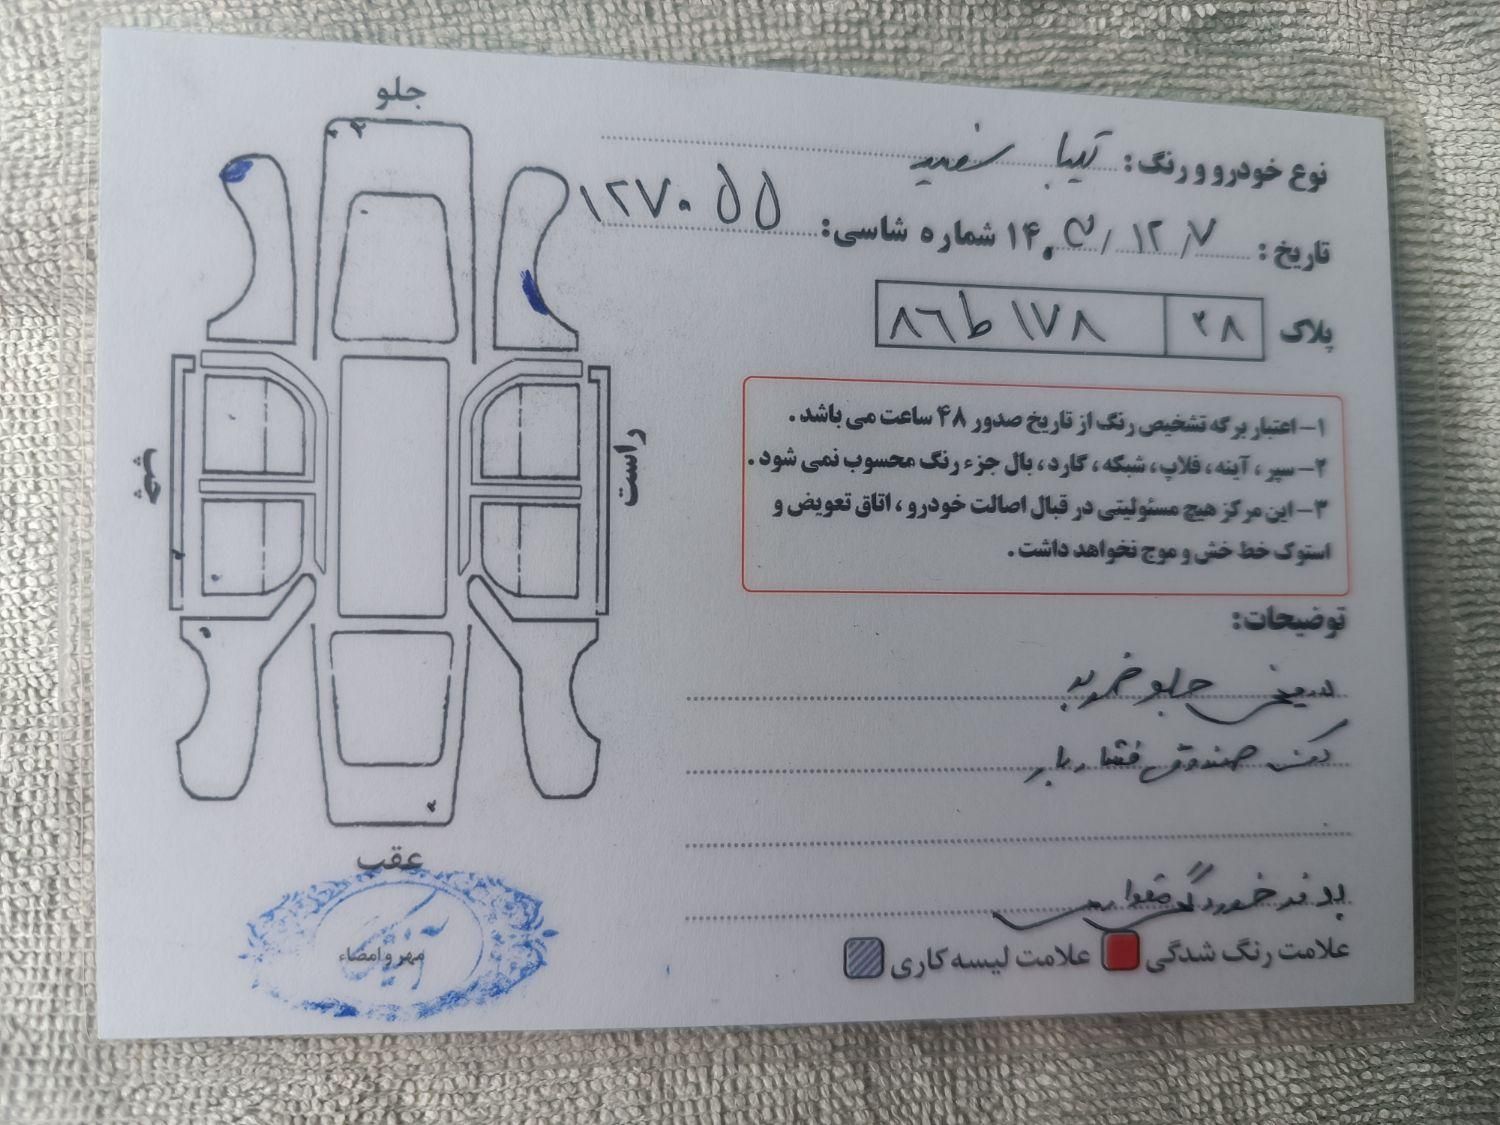 جلو
نوع خودرو و رنگ: تیبا سفید
تاریخ: ۷/ ۱۲/ ۱۴۰۳ شماره شاسی: ۱۲۷۰۵۵
پلاک ۳۸ ۸۶ ط ۱۷۸
۱- اعتبار برگه تشخیص رنگ از تاریخ صدور ۴۸ ساعت می باشد.
۲- سپر، آینه، فلاپ، شبکه، گارد، بال جزء رنگ محسوب نمی شود.
۳- این مرکز هیچ مسئولیتی در قبال اصالت خودرو، اتاق تعویض و
استوک خط خش و موج نخواهد داشت.
راست
چپ
توضیحات:
سینی جلو ضربه
کف صندوق فشار بار
عقب
علامت رنگ شدگی علامت لیسه کاری
مهر و امضاء